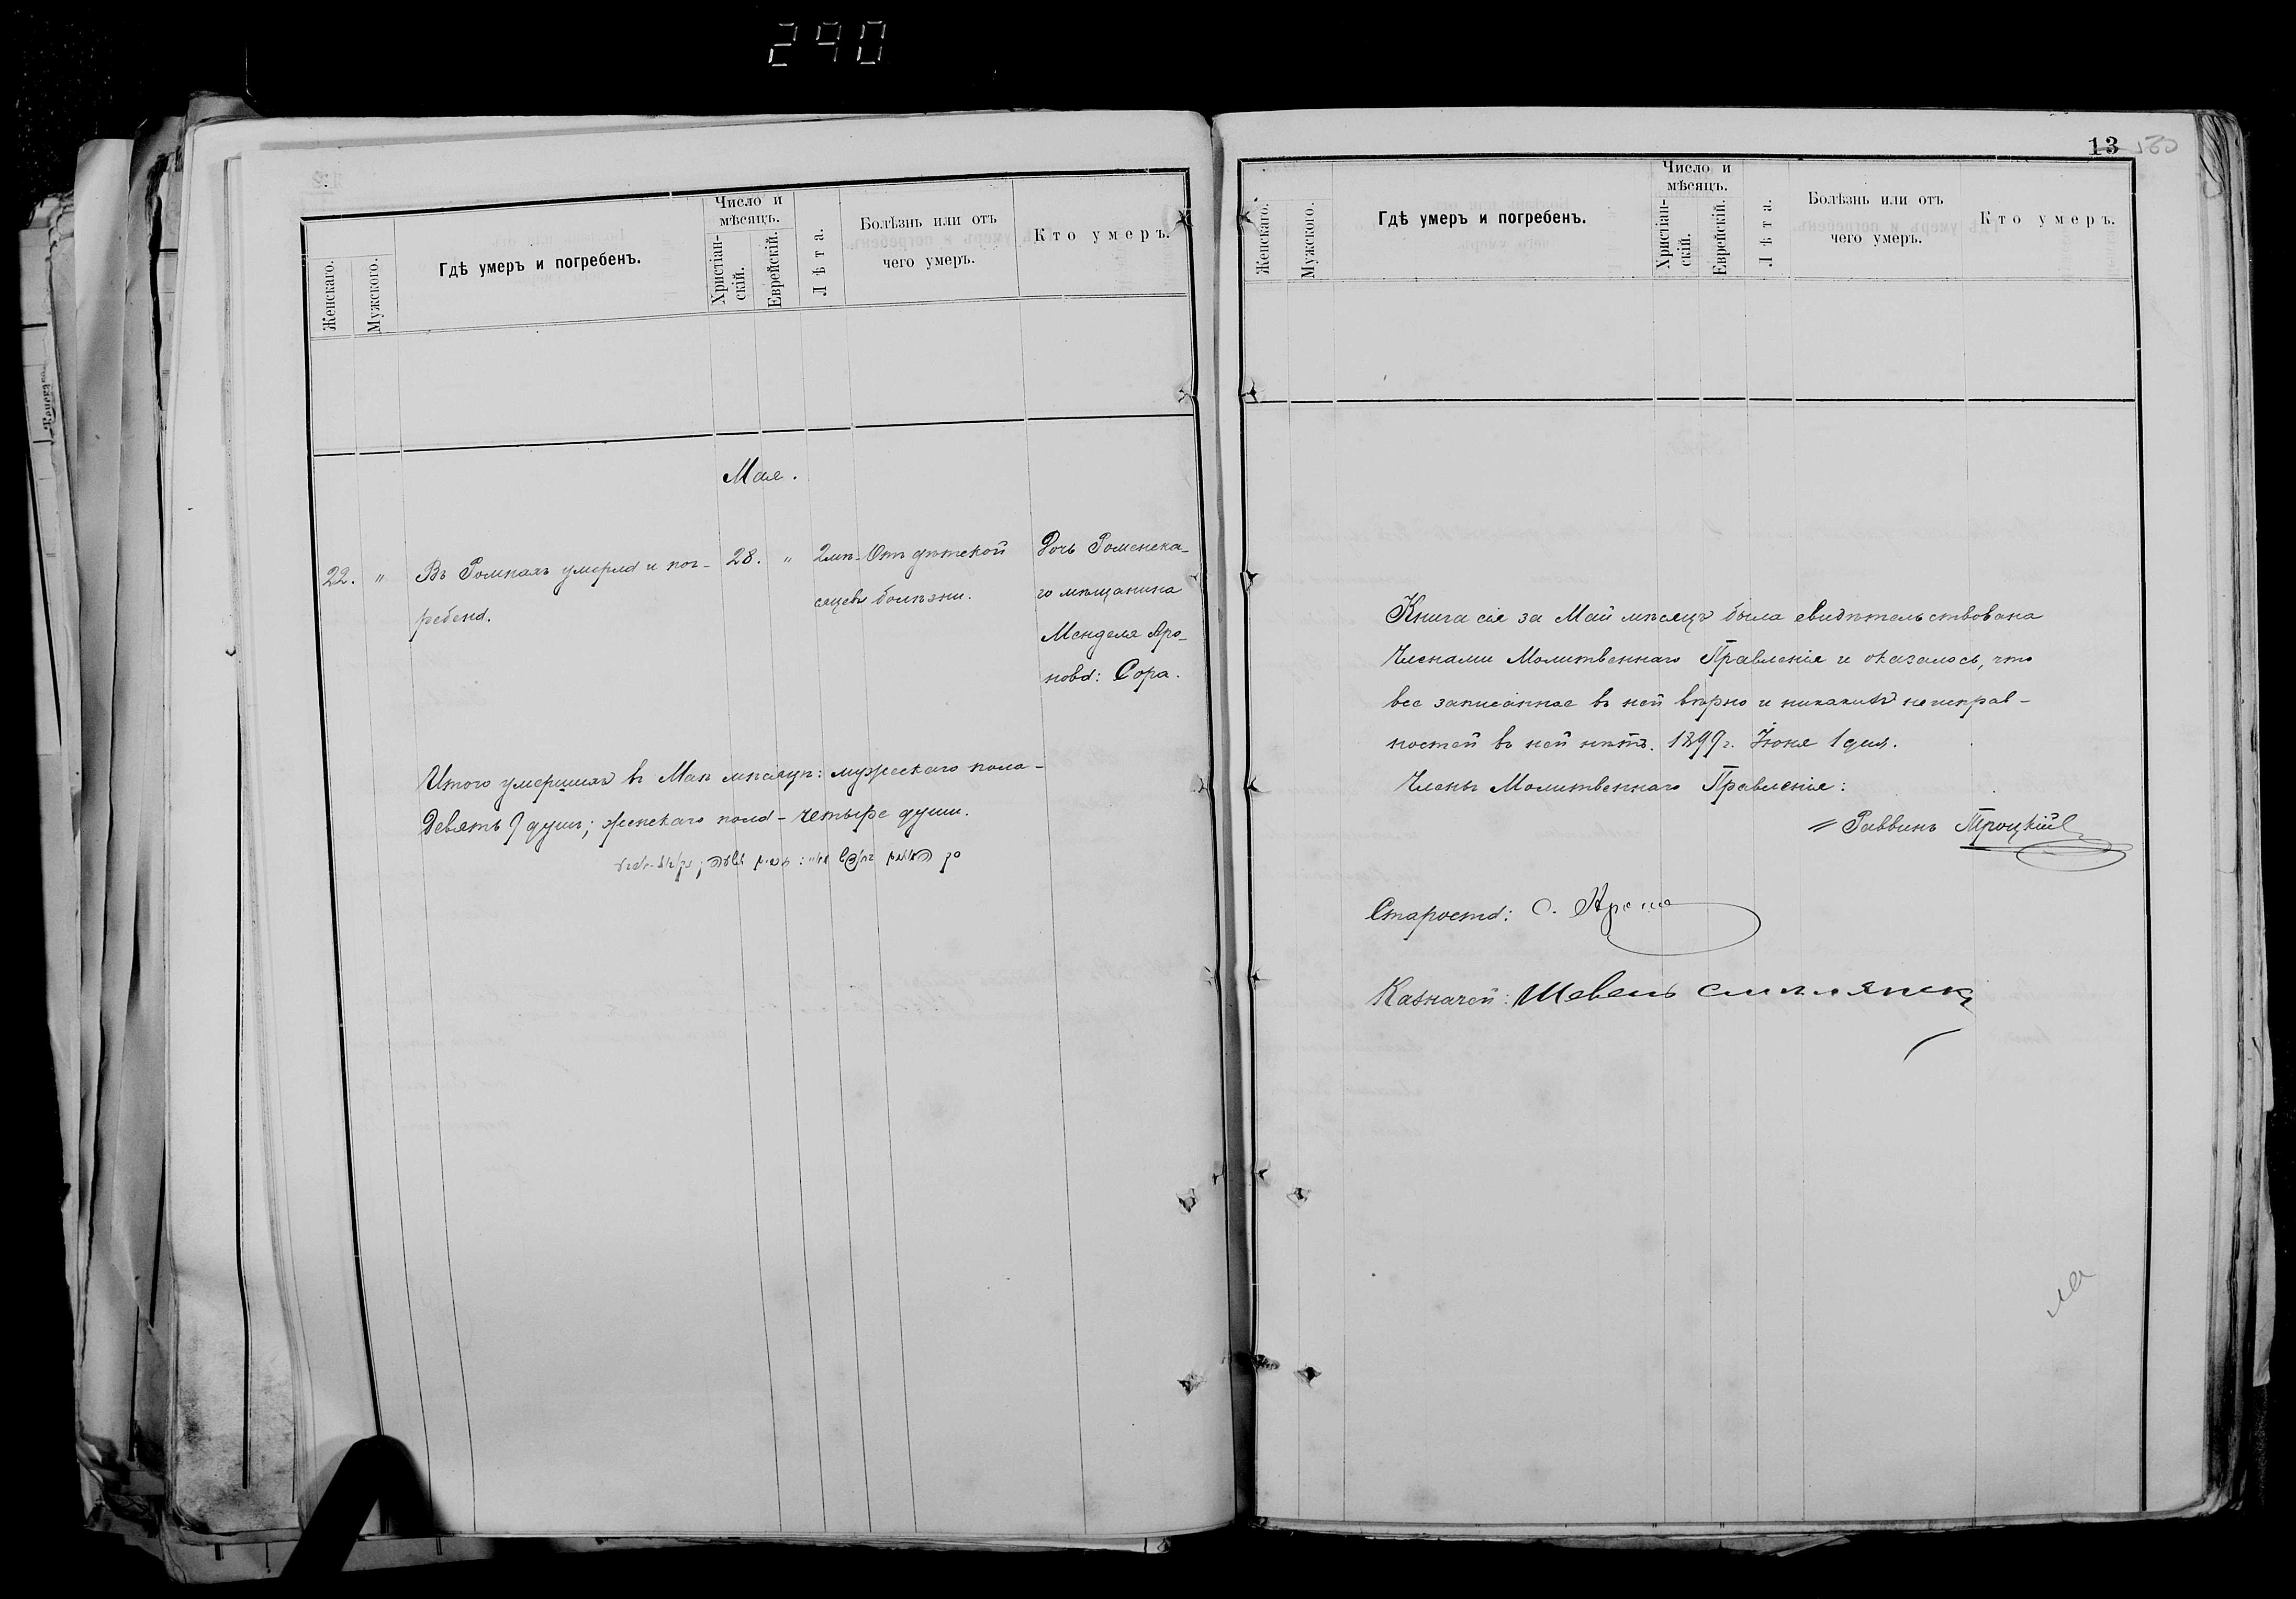 290
Женскаго.
Мужского.
Гдѣ умеръ и погребенъ.
Число и
мѣсяцъ.
Христіан-
скій.
Еврейскій.
Лѣта.
Болѣзнь или отъ
чего умеръ.
Кто умеръ.
Мая.
22. " Въ Ромнахъ умерла и пог- 28. " 2 мѣ- Отъ дѣтской Дочь Роменска-
ребена. сяцевъ болѣзни. го мѣщанина
Менделя Аро-
нова: Сора.
Итого умершихъ въ Маѣ мѣсяцѣ: мужескаго пола -
девять 9 душъ; женскаго пола - четыре души.
13
Женскаго.
Мужского.
Гдѣ умеръ и погребенъ.
Число и
мѣсяцъ.
Христіан-
скій.
Еврейскій.
Лѣта.
Болѣзнь или отъ
чего умеръ.
Кто умеръ.
Книга сія за Май мѣсяцъ была свидѣтельствована
Членами Молитвеннаго Правленія и оказалось, что
все записанное въ ней вѣрно и никакихъ неисправ-
ностей въ ней нѣтъ. 1899 г. Іюня 1 дня.
Члены Молитвеннаго Правленія:
Раввинъ Троцкій
Староста: С.
Казначей: Шевель